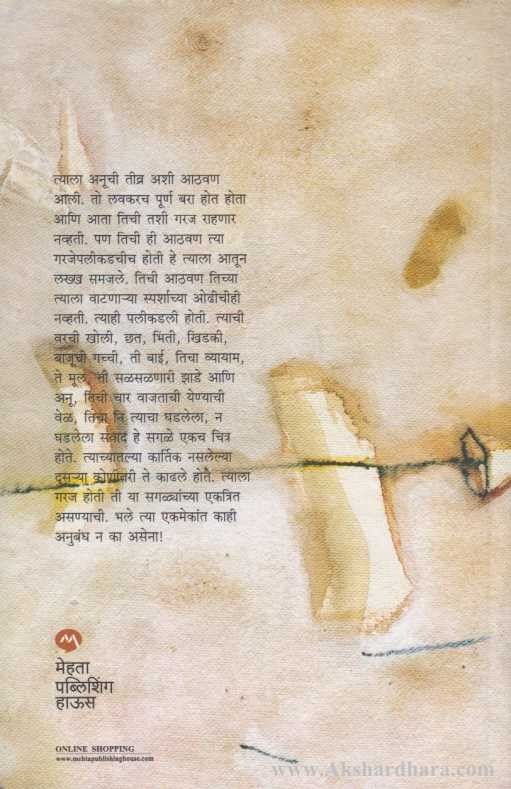 त्याला अनूची तीव्र अशी आठवण
आली. तो लवकरच पूर्ण बरा होत होता
आणि आता तिची तशी गरज राहणार
नव्हती. पण तिची ही आठवण त्या
गरजेपलीकडचीच होती हे त्याला आतून
लख्ख समजले. तिची आठवण तिच्या
त्याला वाटणाऱ्या स्पर्शाच्या ओढीचीही
नव्हती. त्याही पलीकडली होती. त्याची
वरची खोली, छत, भिंती, खिडकी,
बाजूची गच्ची, ती बाई, तिचा व्यायाम,
ते मूल, ती सळसळणारी झाडे आणि
अनू, तिची चार वाजताची येण्याची
वेळ, तिचा नि त्याचा घडलेला, न
घडलेला संवाद हे सगळे एकच चित्र
होते. त्याच्यातल्या कार्तिक नसलेल्या
दुसऱ्या कोणीतरी ते काढले होते. त्याला
गरज होती ती या सगळ्यांच्या एकत्रित
असण्याची. भले त्या एकमेकांत काही
अनुबंध न का असेना!
मेहता
पब्लिशिंग
हाऊस
ONLINE SHOPPING
www.mehtapublishinghouse.com
www.Akshardhara.com